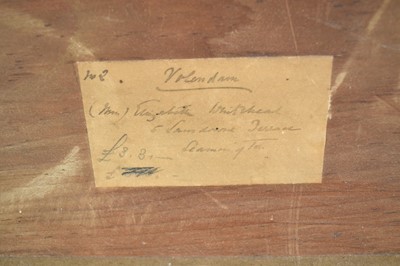 No 2. Volendam
(Mrs) Elizabeth Whitehead
5 Lansdowne Terrace
£3. 3. — Leamington.
£